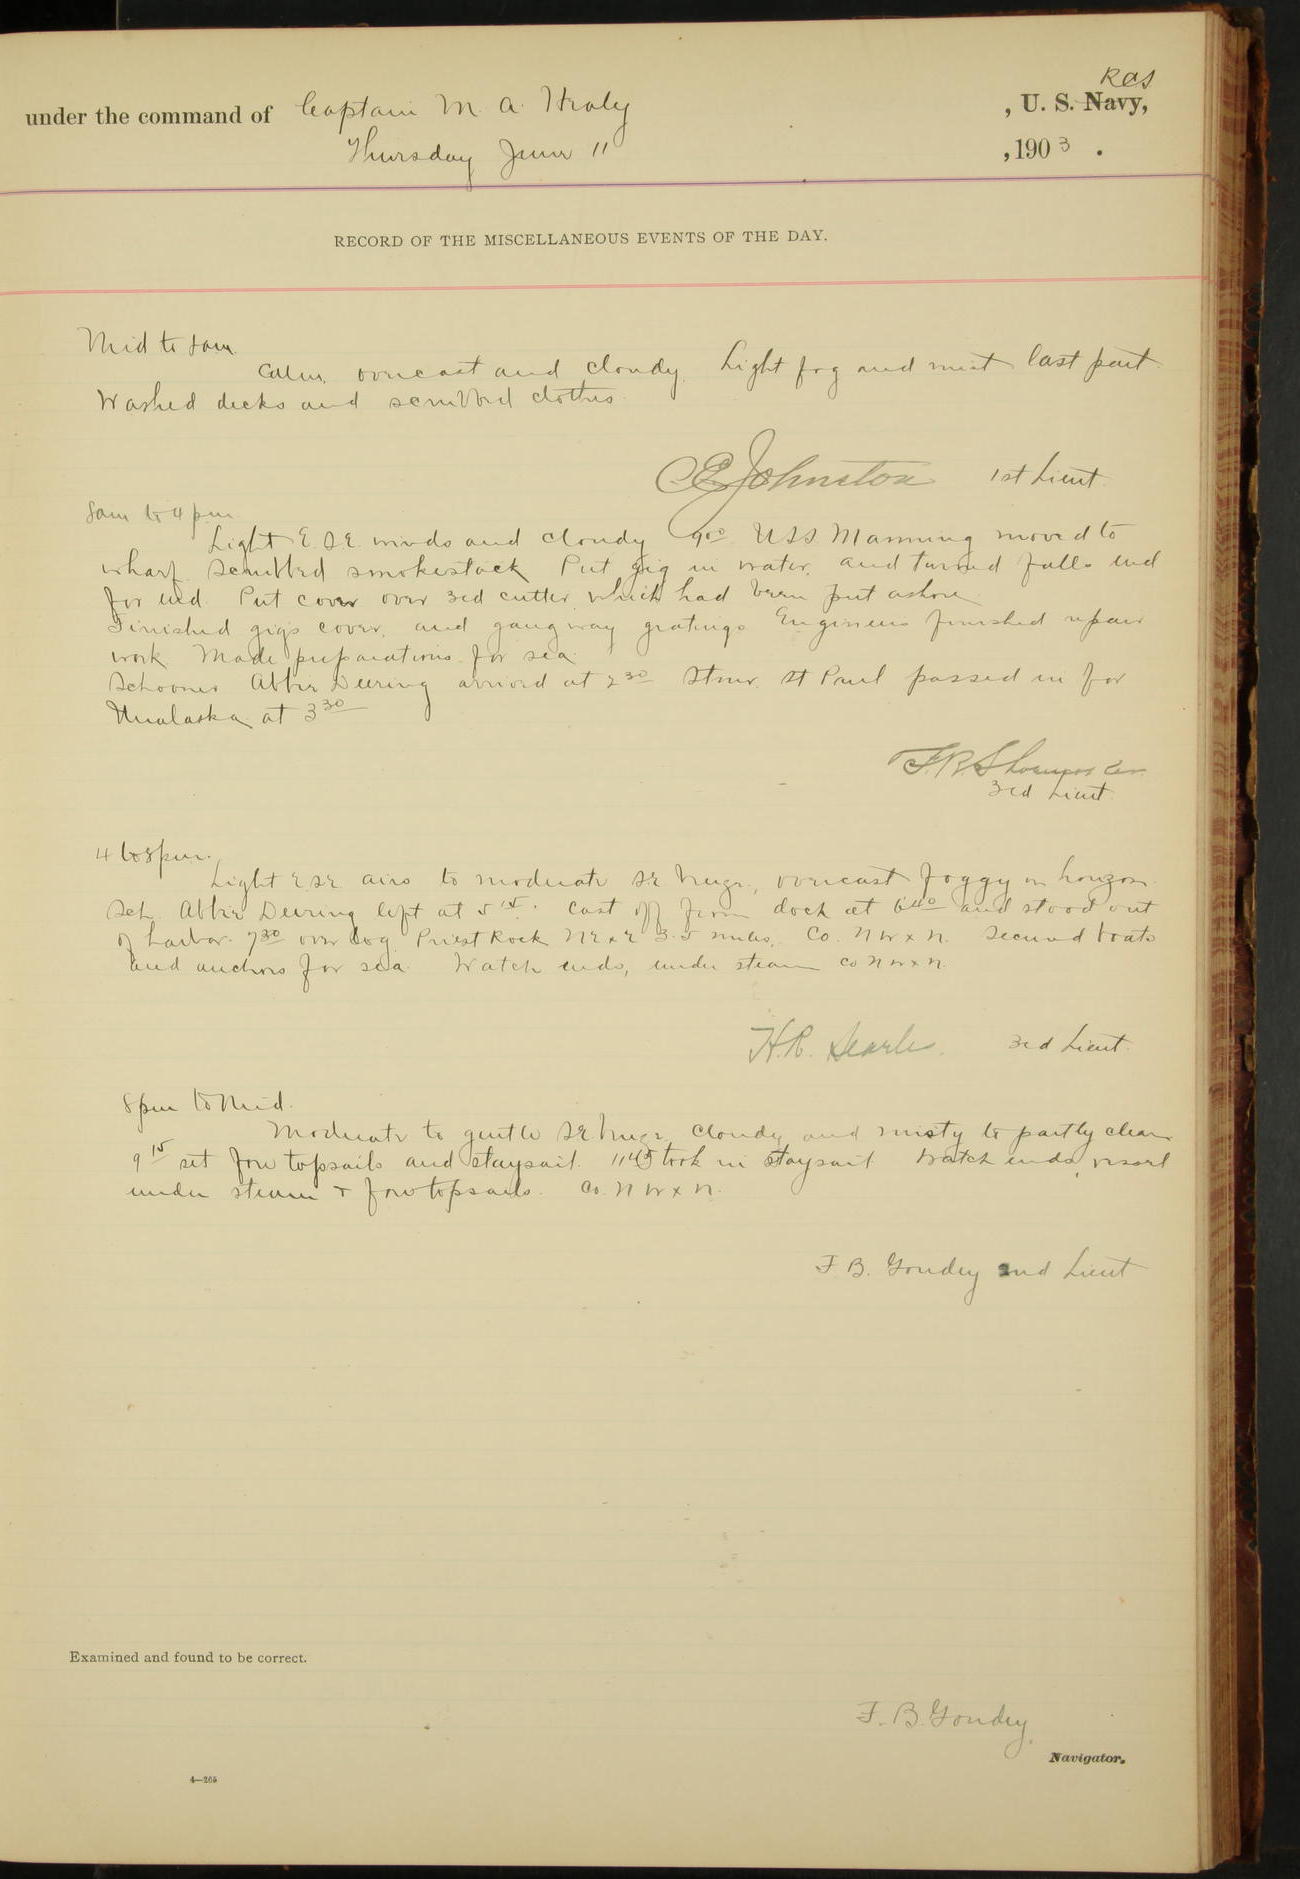 RCS
under the command of Captain M. A. Healy , U. S. Navy,
Thursday June 11 , 1903 .
RECORD OF THE MISCELLANEOUS EVENTS OF THE DAY.
Mid to 8 am.
Calm, overcast and cloudy. Light fog and mist last part
Washed decks and scrubbed clothes.
Johnston 1st Lieut.
8 am to 4 pm.
Light E.SE. winds and cloudy 9 00 USS Manning moved to
wharf. Scrubbed smokestack Put gig in water, and turned falls end
for end. Put cover over 3rd cutter which had been put ashore.
Finished gigs cover, and gangway gratings Engineers finished repair
work. Made preparations for sea.
Schooner Abbie Deering arrived at 2 30 Stmr. St Paul passed in for
Unalaska at 3 30
3rd Lieut.
4 to 8 pm.
Light ESE airs to moderate SE breeze, overcast foggy on horizon.
Sch. Abbie Deering left at 5 15. Cast off from dock at 6 40 and stood out
of harbor. 7 30 over log Priest Rock NExE 3.5 miles. Co. NWxN. Secured boats
and anchors for sea. Watch ends, under steam Co NWxN.
H.R. Searles. 3rd Lieut.
8 pm to Mid.
Moderate to gentle SE breeze cloudy and misty to partly clear
9 15 set fore topsails and staysail. 11 45 took in staysail Watch ends, vessel
under steam + fore topsails. Co. NWxN.
F B. Goudey 2nd Lieut
Examined and found to be correct.
F. B. Goudey.
Navigator.
4—265